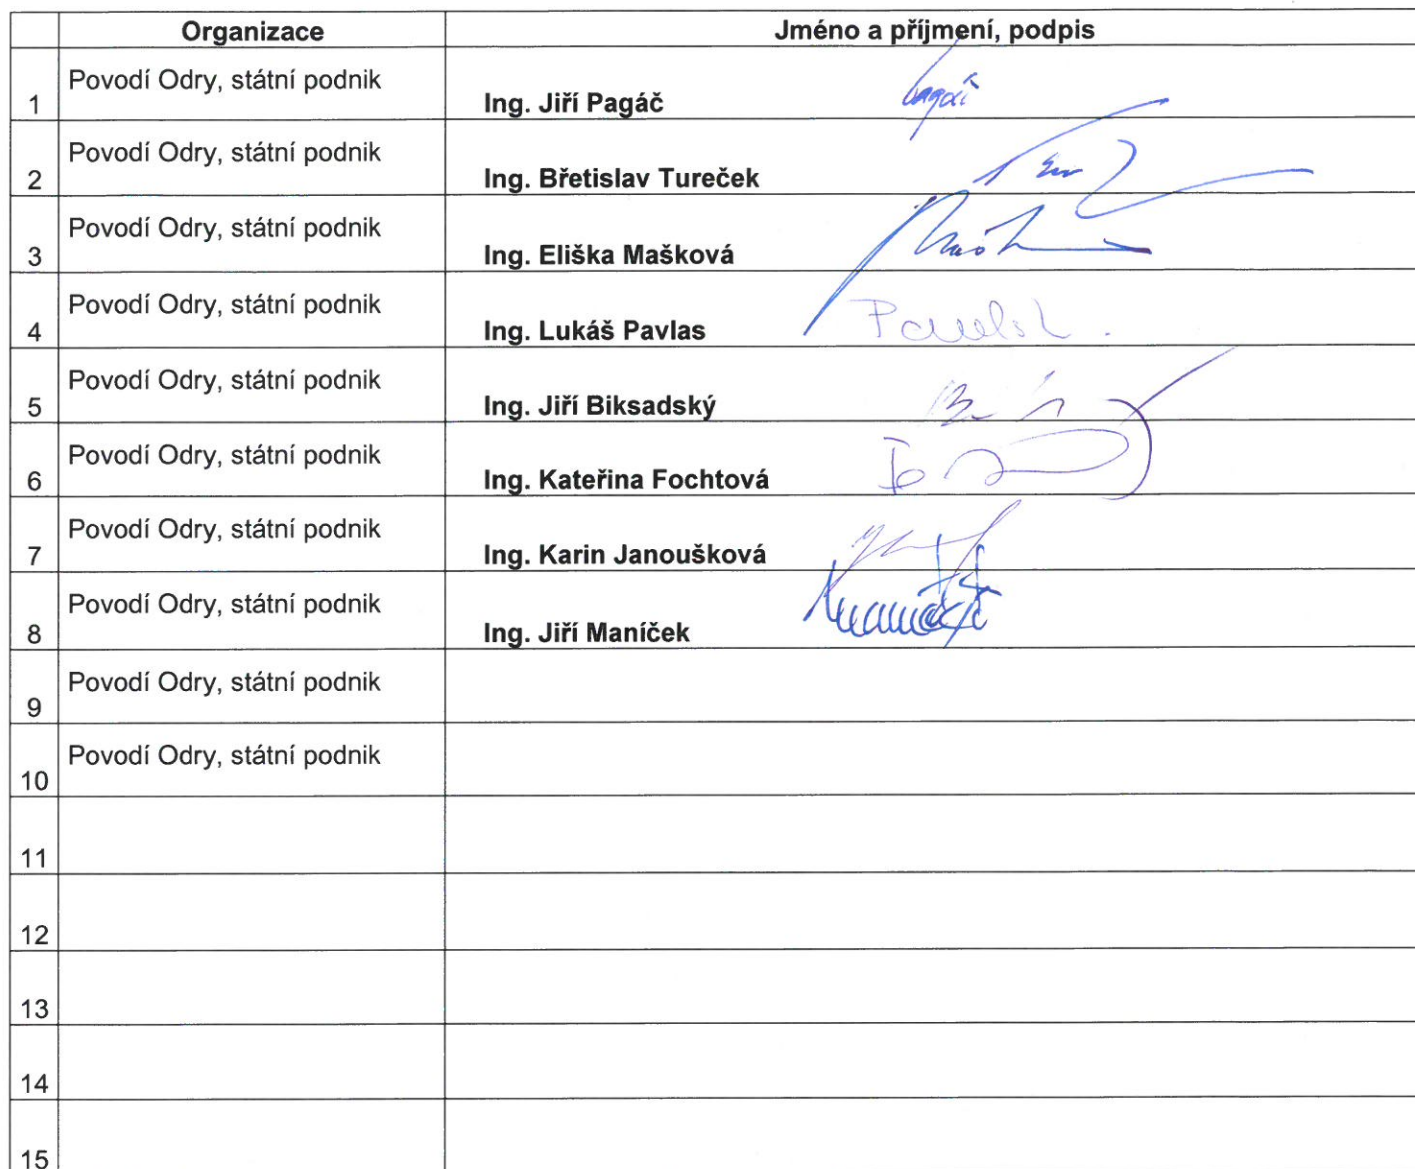 Organizace Jméno a příjmení, podpis
1 Povodí Odry, státní podnik Ing. Jiří Pagáč
2 Povodí Odry, státní podnik Ing. Břetislav Tureček
3 Povodí Odry, státní podnik Ing. Eliška Mašková
4 Povodí Odry, státní podnik Ing. Lukáš Pavlas
5 Povodí Odry, státní podnik Ing. Jiří Biksadský
6 Povodí Odry, státní podnik Ing. Kateřina Fochtová
7 Povodí Odry, státní podnik Ing. Karin Janoušková
8 Povodí Odry, státní podnik Ing. Jiří Maníček
9 Povodí Odry, státní podnik
10 Povodí Odry, státní podnik
11
12
13
14
15